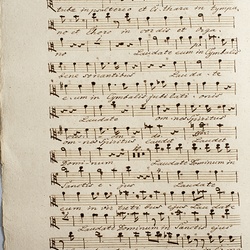 tubæ in psalterio et cithara in tympa
no et choro in cordis et orga
no Laudate eum in Cymbalis
bene sonantibus Lauda te
eum in Cymbalis jubilationis
Laudate omnis Spiritus
omnis Spiritus laudet do
Dominum Laudate Dominum in
Sanctis ejus Laudate
eum in virtutibus ejus Laudate
Laudate Dominum in Sanctis ejus